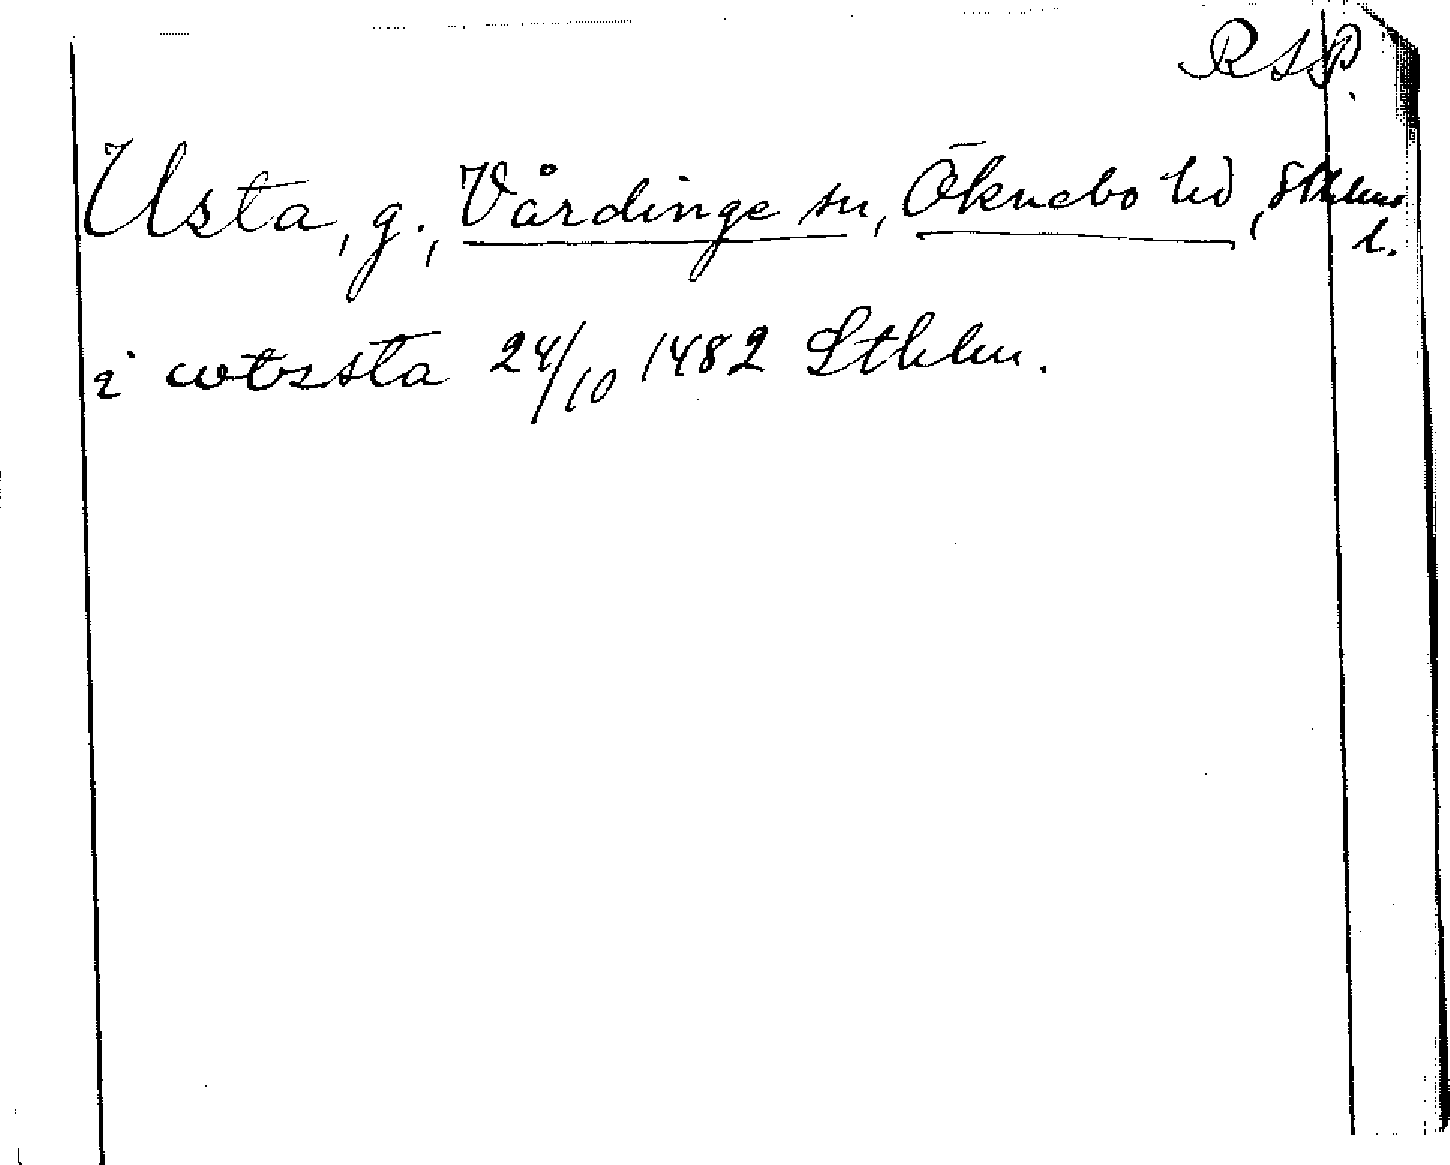 RAP.
Usta, g., Vårdinge sn, Öknebo hd, Sthlms
l.
i wtzsta 24/10 1482 Sthlm.